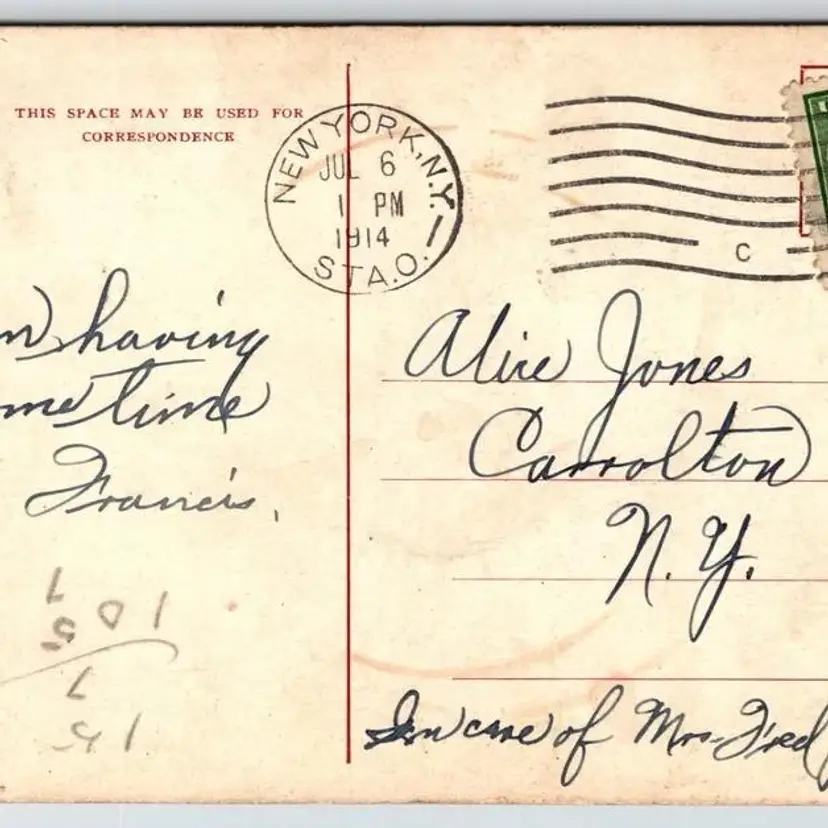 THIS SPACE MAY BE USED FOR
CORRESPONDENCE
NEW YORK, N.Y.
JUL 6
1 PM
1914
STA.O.
C
having
time
Francis.
Alice Jones
Carrolton
N. Y.
In care of Mrs. Fred